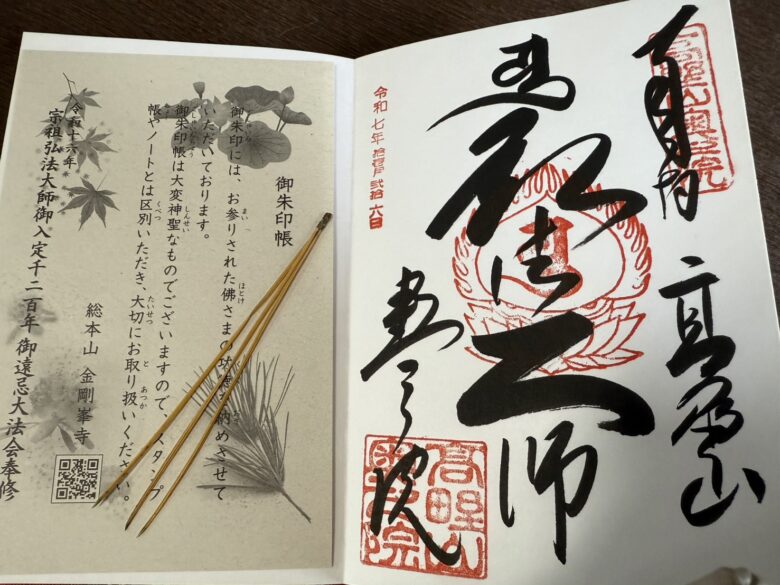 高野山
弘法大師
奥之院
令和七年 弐拾六日
高野山奥之院
御朱印帳
御朱印には、お参りされた佛さまの功徳を納めさせて
いただいております。
御朱印帳は大変神聖なものでございますので、スタンプ
帳やノートとは区別いただき、大切にお取り扱いください。
総本山 金剛峯寺
令和十六年
宗祖弘法大師御入定千二百年 御遠忌大法会奉修